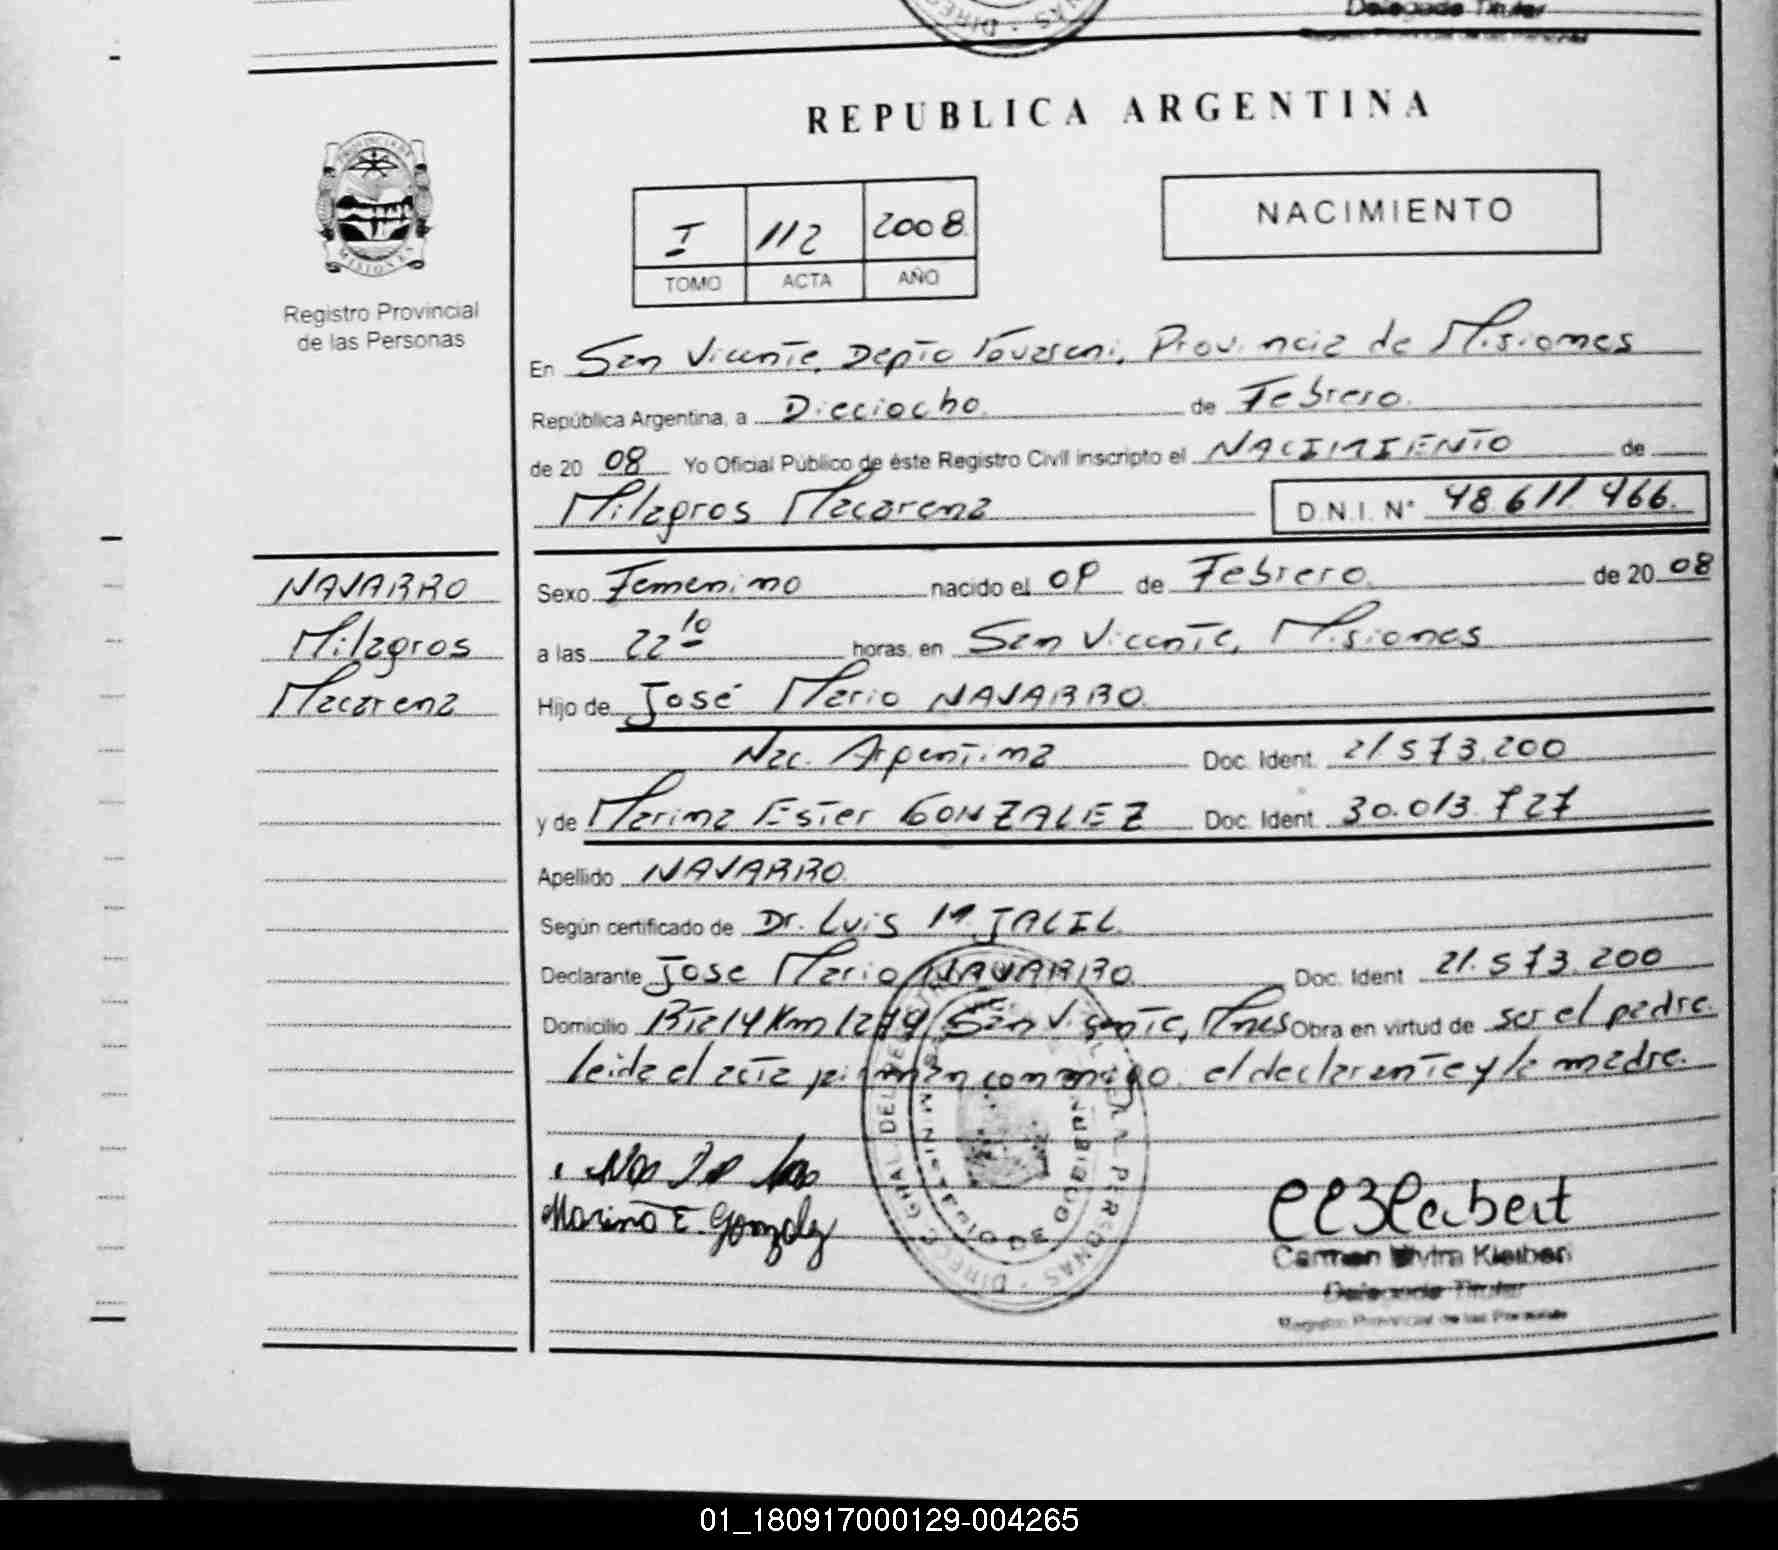 Delegada Titular
Registro Provincial de las Personas
REPUBLICA ARGENTINA
PROVINCIA DE
MISIONES
Registro Provincial
de las Personas
I 112 2008
TOMO ACTA AÑO
NACIMIENTO
En San Vicente, Depto Guaraní, Provincia de Misiones
República Argentina, a Dieciocho de Febrero
de 20 08 Yo Oficial Público de éste Registro Civil inscripto el NACIMIENTO de
Milagros Macarena D.N.I. N° 48.611.466.
NAVARRO
Milagros
Macarena
Sexo Femenino nacido el 09 de Febrero de 20 08
a las 22 10 horas, en San Vicente, Misiones
Hijo de José Mario NAVARRO
Nac. Argentina Doc. Ident. 21.573.200
y de Marina Ester GONZALEZ Doc. Ident. 30.013.727
Apellido NAVARRO
Según certificado de Dr. Luis M. JALIL
Declarante Jose Mario NAVARRO Doc. Ident. 21.573.200
Domicilio Rta 14 Km 1279 San Vicente, Mnes Obra en virtud de ser el padre.
leida el acta firman conmigo el declarante y la madre.
Marina E. Gonzalez
Carmen Elvira Kleibert
Delegada Titular
Registro Provincial de las Personas
01_180917000129-004265